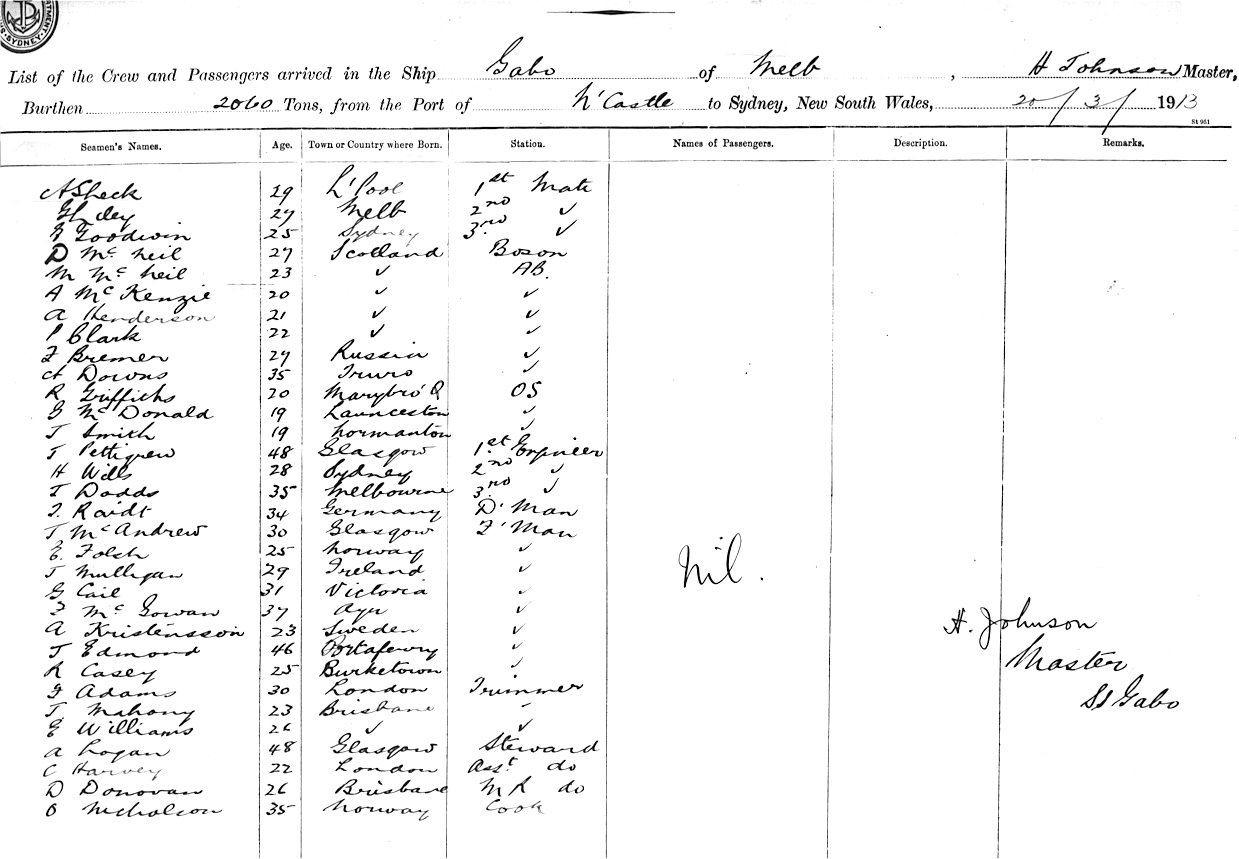 SYDNEY
List of the Crew and Passengers arrived in the Ship Gabo of Melb, H Johnson Master,
Burthen 2060 Tons, from the Port of N'Castle to Sydney, New South Wales, 20/3/1913
St 961
Seamen's Names. Age. Town or Country where Born. Station. Names of Passengers. Description. Remarks.
A Sheck 29 L'Pool 1st Mate
27 Melb 2nd ✓
Goodwin 25 Sydney 3rd ✓
D McNeil 27 Scotland Boson
M McNeil 23 ✓ AB.
A McKenzie 20 ✓ ✓
A Henderson 21 ✓ ✓
P Clark 22 ✓ ✓
F Bremer 27 Russia ✓
A Downs 35 Truro ✓
R Griffiths 20 Marybro' Q OS
G McDonald 19 Launceston ✓
J Smith 19 Normanton ✓
J Pettigrew 48 Glasgow 1st Engineer
H Wills 28 Sydney 2nd ✓
J Dodds 35 Melbourne 3rd ✓
J. Raidt 34 Germany D'Man
J McAndrew 30 Glasgow F'Man
E. Folsh 25 Norway ✓
J Mulligan 29 Ireland ✓
Nil.
G Cail 31 Victoria ✓
F McGowan 37 Ayr ✓
A Kristensson 23 Sweden ✓
H. Johnson
J Edmond 46 Portaferry ✓
Master
R Casey 25 Burketown ✓
F Adams 30 London Trimmer
SS Gabo
J Mahony 23 Brisbane ✓
E Williams 26 ✓ ✓
A Logan 48 Glasgow Steward
C Harvey 22 London Asst do
D Donovan 26 Brisbane MR do
O Nicholson 35 Norway Cook